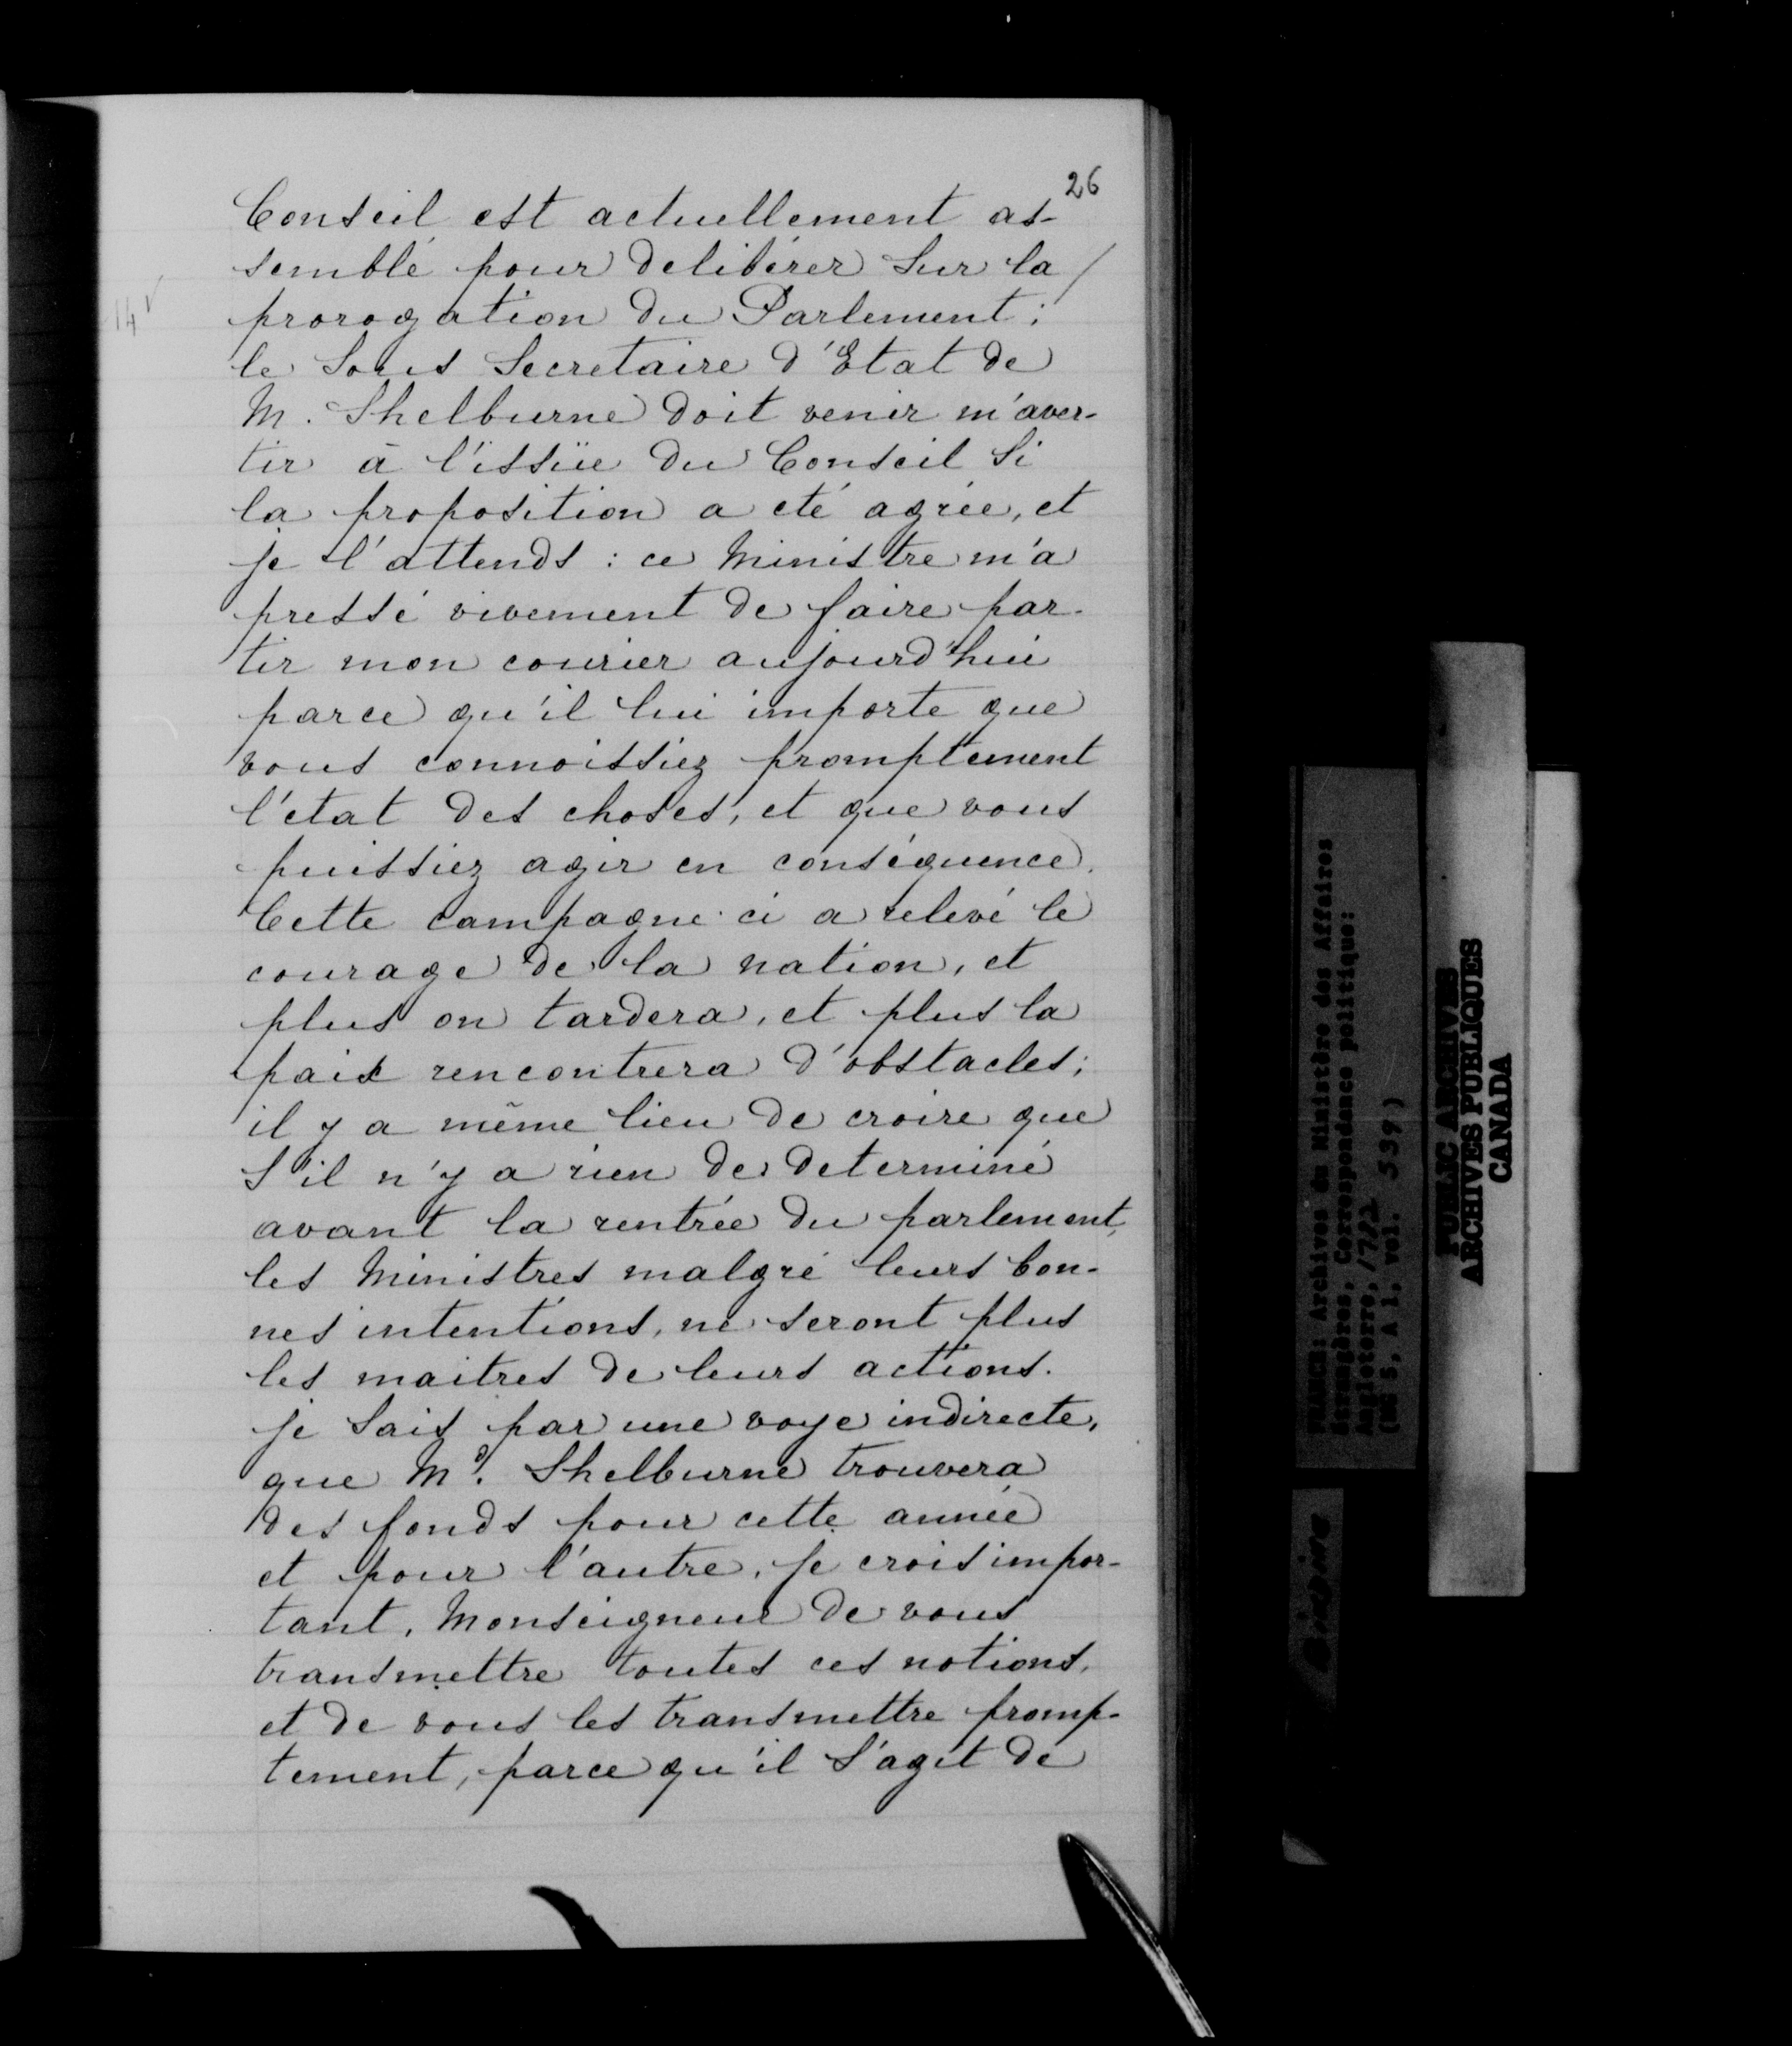 26
Conseil est actuellement as-
semblé pour deliberer Sur la /
14v
prorogation du Parlement;
le Sous Secretaire d'Etat de
M. Shelburne doit venir m'aver-
tir à l'issüe du Conseil Si
la proposition a eté agréé, et
je l'attends : ce Ministre m'a
pressé vivement de faire par-
tir mon courier aujourd'hui
parce qu'il lui importe que
vous connoissiez promptement
l'etat des choses, et que vous
puissiez agir en conséquence.
Cette campagne-ci a relevé le
courage de la nation, et
plus on tardera, et plus la
paix rencontrera d'obstacles;
il y a même lieu de croire que
S'il n'y a rien de determiné
avant la rentrée du parlement,
les Ministres malgré leurs bon-
nes intentions, ne seront plus
les maitres de leurs actions.
je Sais par une voye indirecte,
que Md. Shelburne trouvera
des fonds pour cette année
et pour l'autre, je crois impor-
tant, Monseigneur de vous
transmettre toutes ces notions,
et de vous les transmettre promp-
tement, parce qu'il S'agit de
France: Archives du Ministère des Affaires
étrangères, Correspondance politique:
Angleterre, 1782
(MG 5, A 1, vol. 539)
PUBLIC ARCHIVES
ARCHIVES PUBLIQUES
CANADA